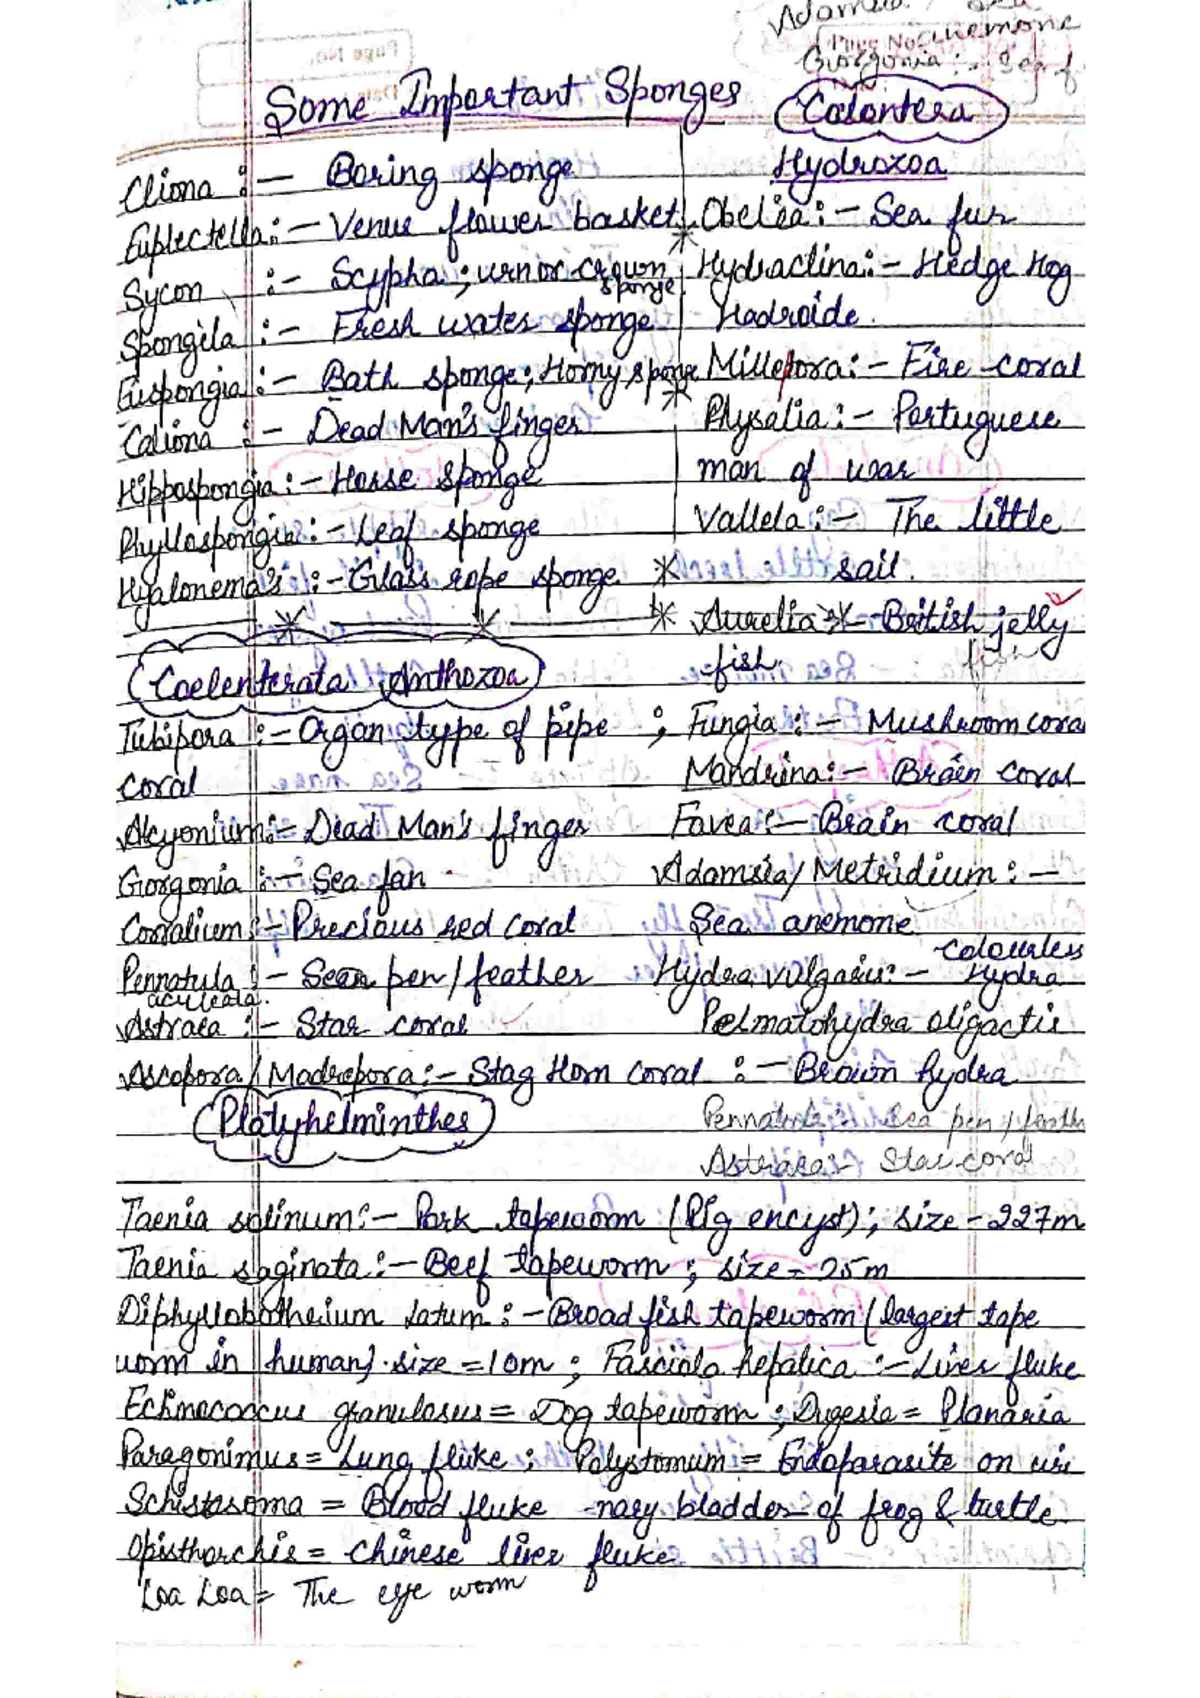 Adamsia / Sea
anemone
Page No.
Gorgonia :- Sea f
Page No.
Some Important Sponges
Cliona :- Boring sponge
Euplectella :- Venue flower basket
Sycon :- Scypha ; urn or crown sponge
Spongila :- Fresh water sponge
Euspongia :- Bath sponge ; Horny sponge
Caliona :- Dead Man's finger
Hippospongia :- Horse sponge
Phyllospongia :- Leaf sponge
Hyalonema's :- Glass rope sponge
Calontera
Hydrozoa
Obelia :- Sea fur
Hydractina :- Hedge Hog
Hadroide.
Millepora :- Fire coral
Physalia :- Portuguese
man of war
Vallela :- The little
sail.
Aurelia :- British jelly
fish.
fish
Coelenterata Anthozoa
Tubipora :- Organ type of pipe ; Fungia :- Mushroom cora
coral
Mandrina :- Brain coral
Alcyonium :- Dead Man's finger
Favea :- Brain coral
Gorgonia :- Sea fan
Adamsia / Metridium :-
Corralium :- Precious red coral
Sea anemone
Pennatula aculeata. :- Sea pen / feather
Hydra vulgaris :- colourless Hydra
Astraea :- Star coral
Pelmatohydra oligactis
Ascopora / Madrepora :- Stag Horn coral
:- Brown hydra
Platyhelminthes
Pennatula :- Sea pen / feath
Astraea :- Star coral
Taenia solinum :- Pork tapeworm (Pig encyst) ; size - 227m
Taenia saginata :- Beef tapeworm ; size = 25m
Diphyllobotheium latum :- Broad fish tapeworm (largest tape
worm in human) . size = 10m ; Fasciola hepalica :- Liver fluke
Echinococcus granulosus = Dog tapeworm ; Dugesia = Planaria
Paragonimus = Lung fluke ; Polystomum = Endoparasite on uri
Schistosoma = Blood fluke -nary bladder of frog & turtle
Opisthorchis = chinese liver fluke
Loa Loa = The eye worm